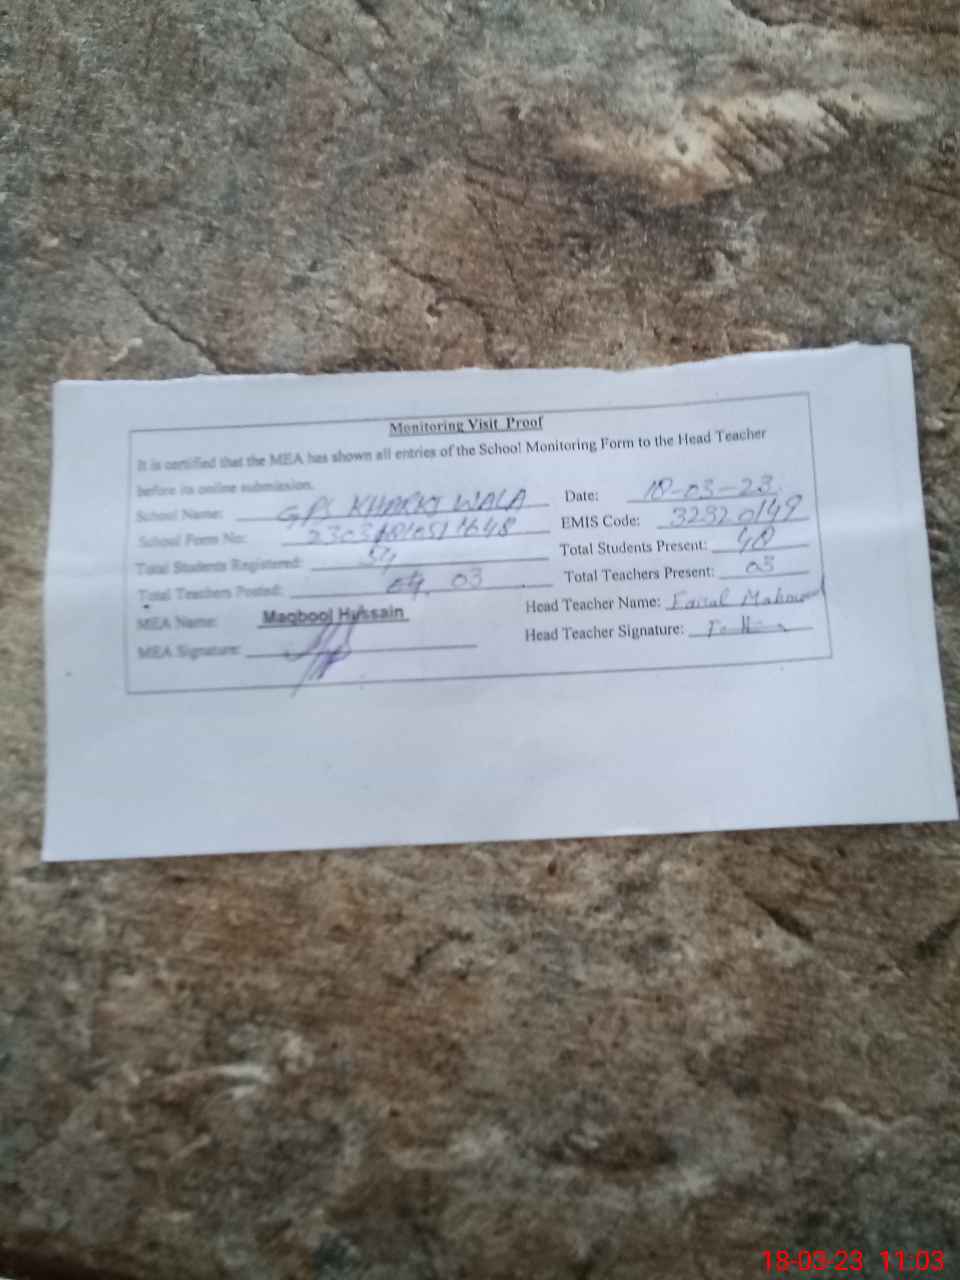 Monitoring Visit Proof
It is certified that the MEA has shown all entries of the School Monitoring Form to the Head Teacher
before its online submission.
School Name: GPS KHARKI WALA Date: 18-03-23
School Form No: EMIS Code: 32320149
Total Students Registered: Total Students Present: 48
Total Teachers Posted: 04, 03 Total Teachers Present: 03
MEA Name: Maqbool Hussain Head Teacher Name: Faisal
MEA Signature: Head Teacher Signature:
18-03-23 11:03